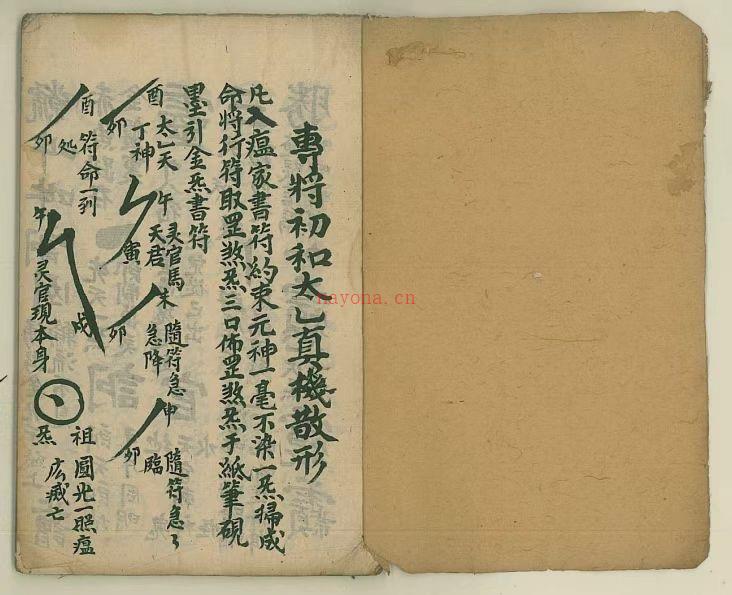 專将初和太乙真機散形
凡入瘟家書符約束元神一毫不染一炁掃成
命将行符取罡煞炁三口佈罡煞炁于紙筆硯
墨引金炁書符
酉 太乙天 午 灵官馬 未 隨符急 申 隨符急々
卯 丁神 寅 天君 卯 急降 卯 臨
酉 符命一到
卯 处
午 灵官現本身 戌
祖 圓光一照瘟
炁
nayona.cn